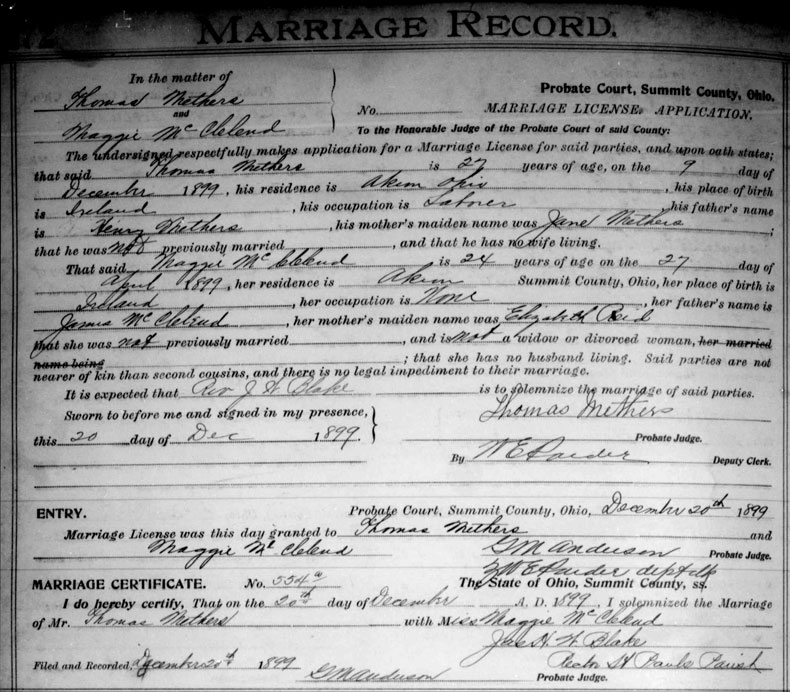 MARRIAGE RECORD.
In the matter of
Thomas Methers
and
Maggie McClelend
Probate Court, Summit County, Ohio.
No. MARRIAGE LICENSE APPLICATION.
To the Honorable Judge of the Probate Court of said County:
The undersigned respectfully makes application for a Marriage License for said parties, and upon oath states;
that said Thomas Methers is 27 years of age, on the 9 day of
December 1899, his residence is Akron Ohio, his place of birth
is Ireland, his occupation is Laborer, his father's name
is Henry Methers, his mother's maiden name was Jane Methers;
that he was not previously married, and that he has no wife living.
That said Maggie McClelend is 24 years of age on the 27 day of
April 1899, her residence is Akron Summit County, Ohio, her place of birth is
Ireland, her occupation is None, her father's name is
James McClelend, her mother's maiden name was Elizabeth Reid
that she was not previously married, and is not a widow or divorced woman, her married
name being; that she has no husband living. Said parties are not
nearer of kin than second cousins, and there is no legal impediment to their marriage.
It is expected that Rev J H Blake is to solemnize the marriage of said parties.
Sworn to before me and signed in my presence,
Thomas Methers
this 20 day of Dec 1899.
Probate Judge.
By W E Deputy Clerk.
ENTRY. Probate Court, Summit County, Ohio, December 20th 1899
Marriage License was this day granted to Thomas Methers and
Maggie McClelend
G M Anderson Probate Judge.
By W E dept clk
MARRIAGE CERTIFICATE. No. 554 The State of Ohio, Summit County, ss.
I do hereby certify, That on the 20th day of December A. D. 1899, I solemnized the Marriage
of Mr. Thomas Methers with Miss Maggie McClelend
Jas H W Blake
Rector St Pauls Parish
Filed and Recorded, December 20th 1899
G M Anderson Probate Judge.